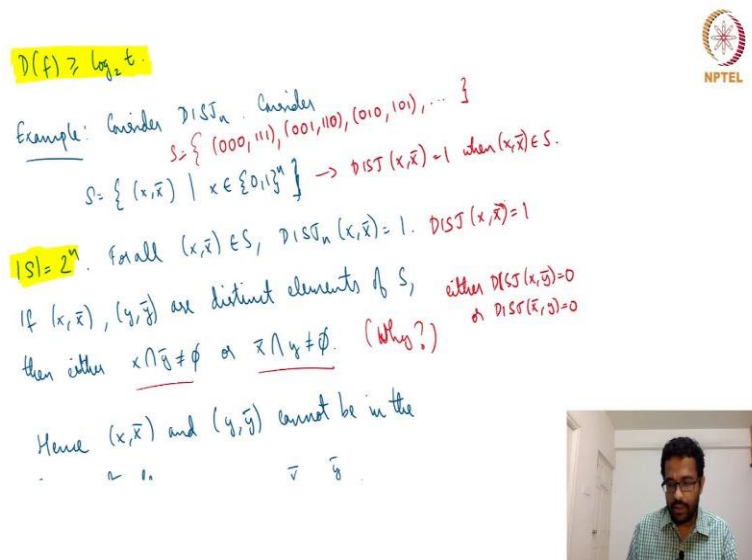 D(f) ≥ log₂ t.
NPTEL
Example: Consider DISJₙ. Consider
S = { (000, 111), (001, 110), (010, 101), ... }
S = { (x, x̄) | x ∈ {0,1}ⁿ } → DISJ(x, x̄) = 1 when (x, x̄) ∈ S.
|S| = 2ⁿ. For all (x, x̄) ∈ S, DISJₙ(x, x̄) = 1. DISJ(x, x̄) = 1
If (x, x̄), (y, ȳ) are distinct elements of S, either DISJ(x, ȳ) = 0
or DISJ(x̄, y) = 0
then either x ∩ ȳ ≠ ∅ or x̄ ∩ y ≠ ∅. (Why?)
Hence (x, x̄) and (y, ȳ) cannot be in the
x̄ ȳ